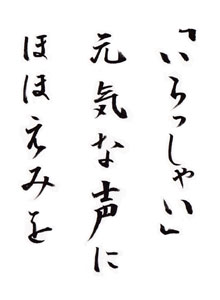 「いらっしゃい」
元気な声に
ほほえみを